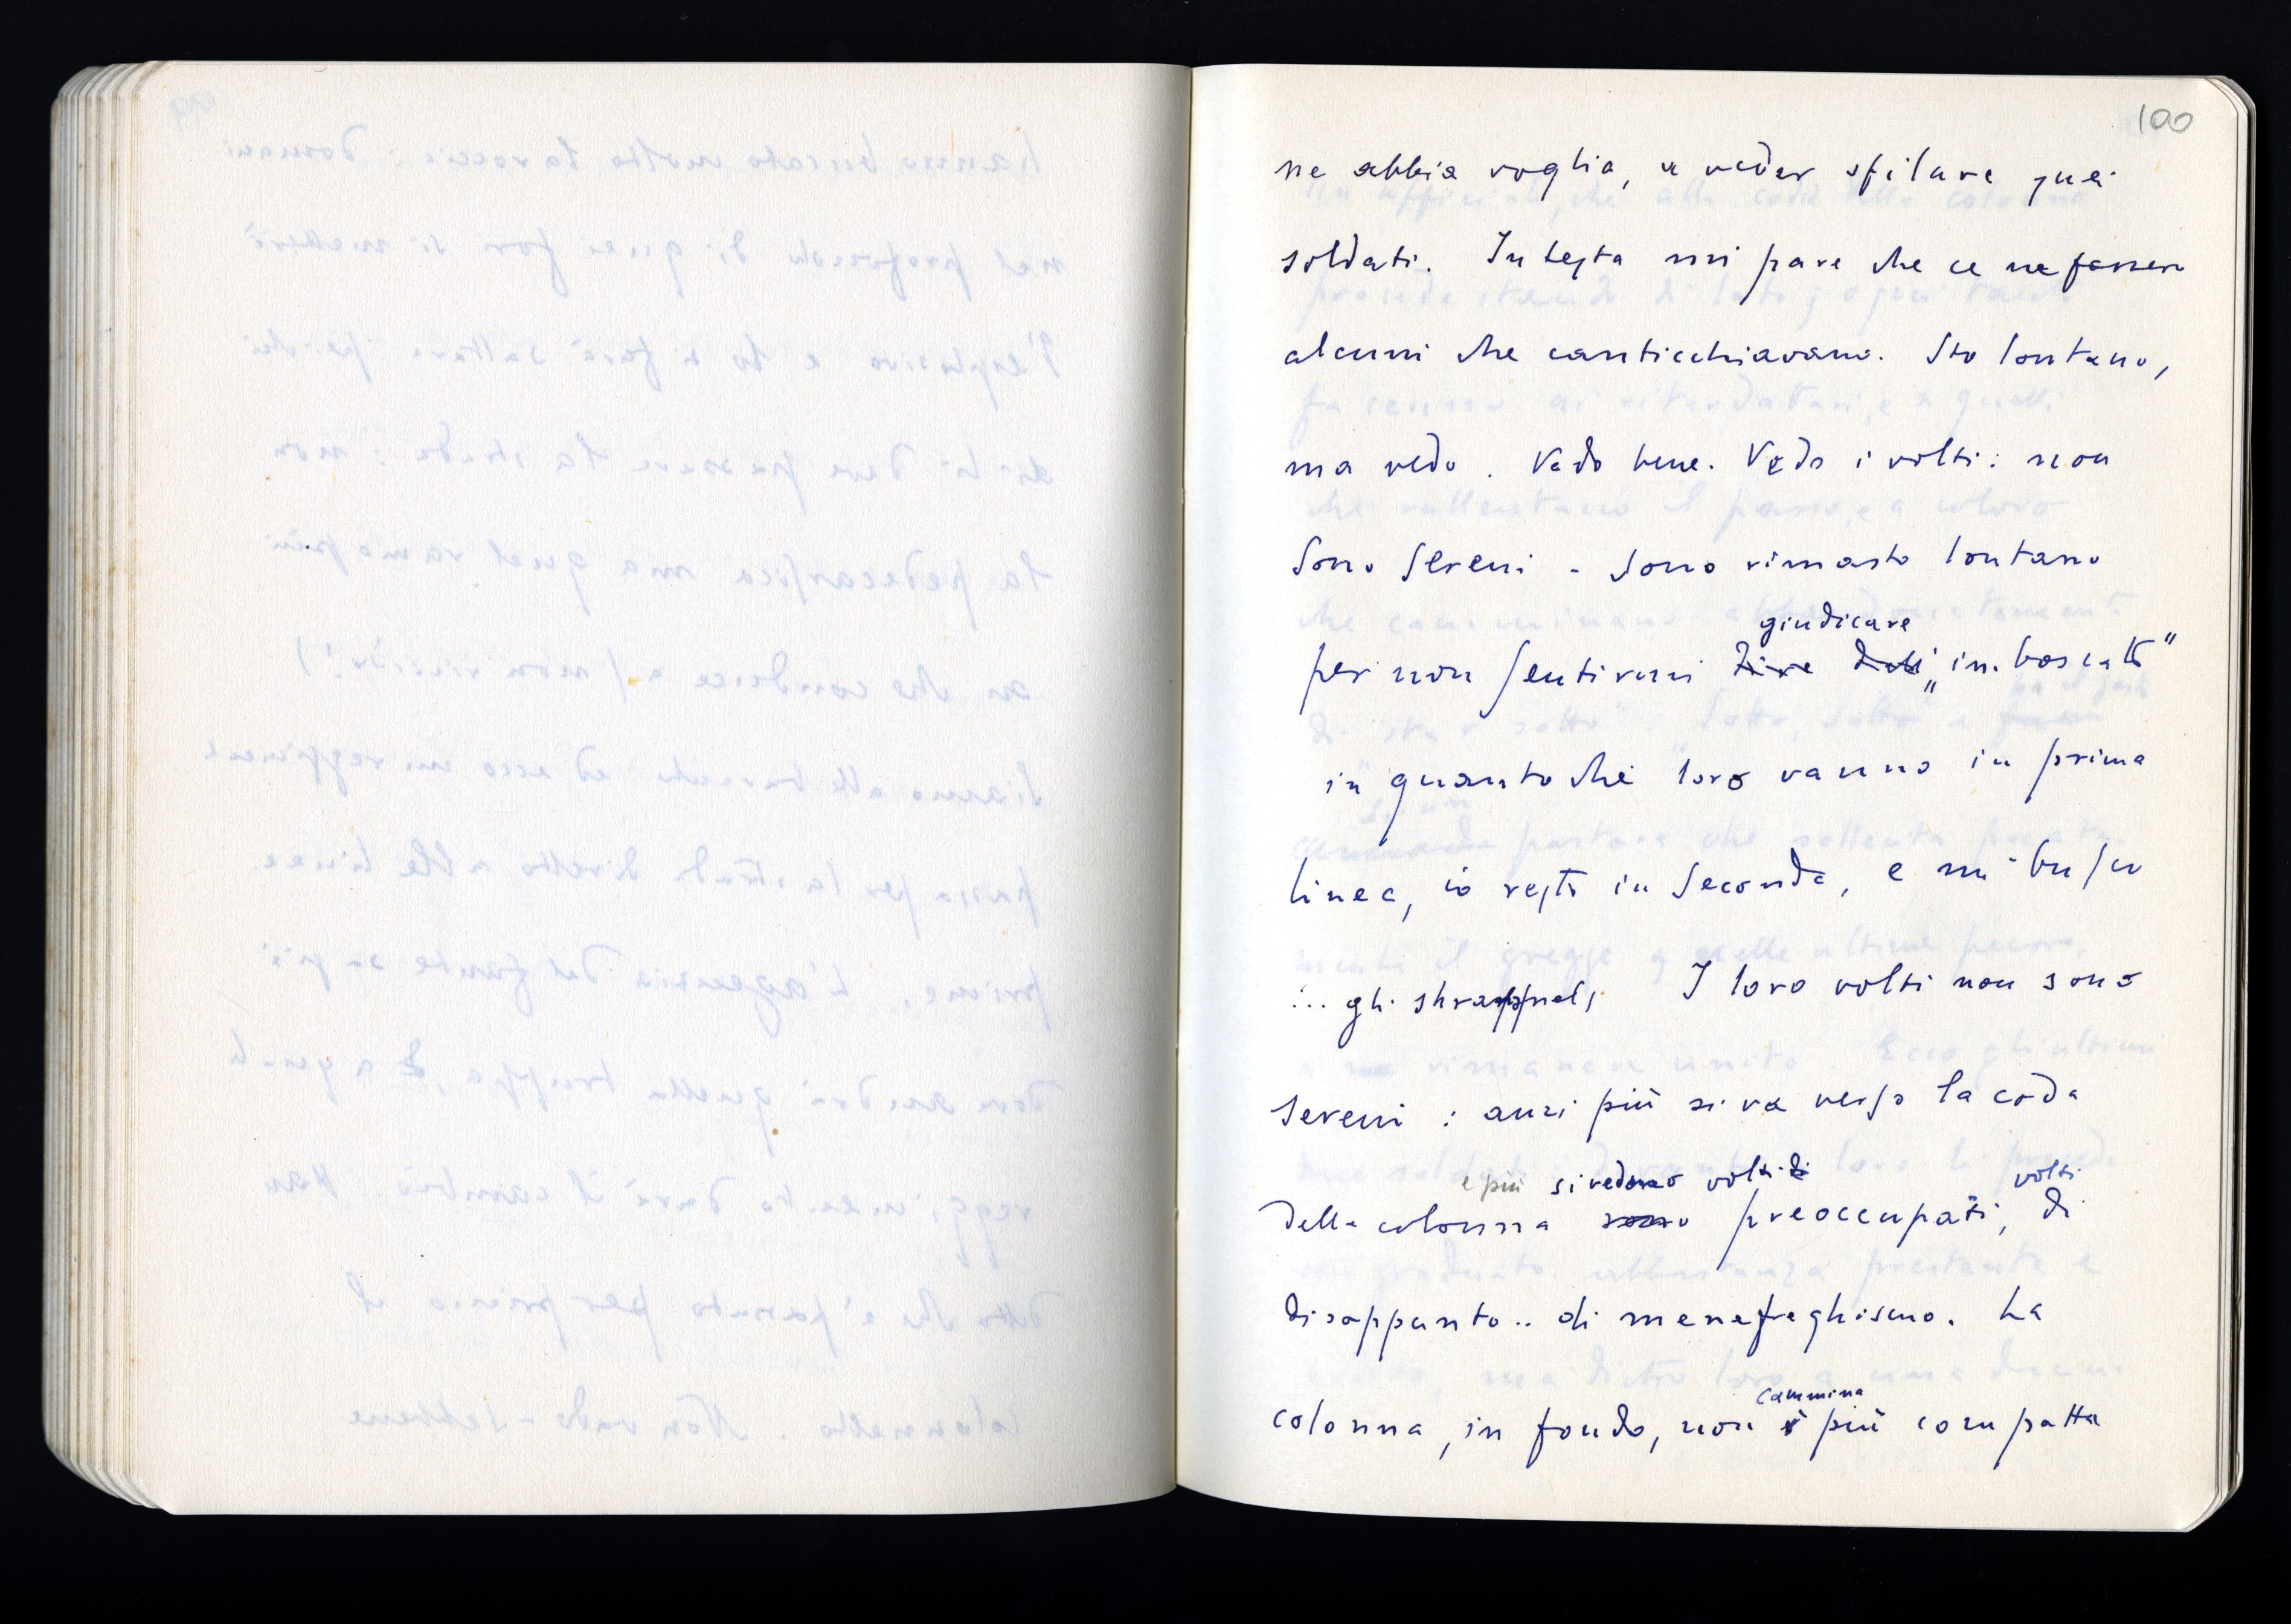 100
ne abbia voglia, a veder sfilare quei
soldati. In testa mi pare che ce ne fossero
alcuni che canticchiavano. Sto lontano,
ma vedo. Vedo bene. Vedo i volti: non
sono sereni - sono rimasto lontano
giudicare
per non sentirmi dire "imboscato"
in quanto che loro vanno in prima
linea, io resto in seconda, e mi
... gli shrapnels. I loro volti non sono
sereni: anzi più si va verso la coda
e più si vedono volti di volti
della colonna sono preoccupati, di
disappunto.. di menefreghismo. La
cammina
colonna, in fondo, non è più compatta